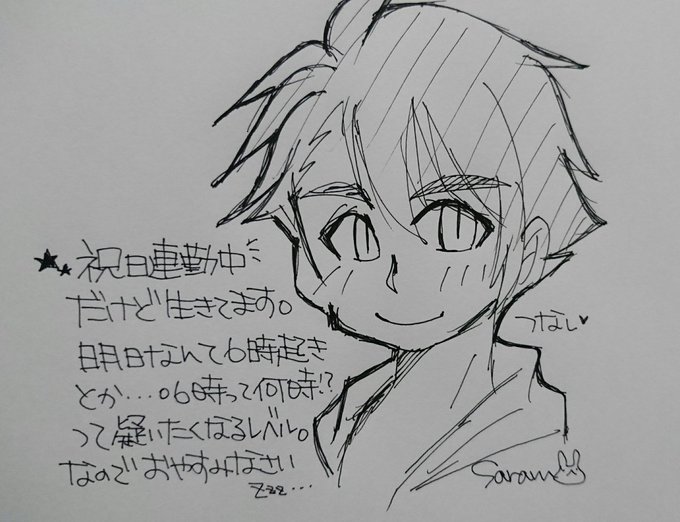 ★★祝日連勤中
だけど生きてます。
明日なんて6時起き
とか…。6時って何時!?
って疑いたくなるレベル。
なのでおやすみなさい
zzz…
つなし♥